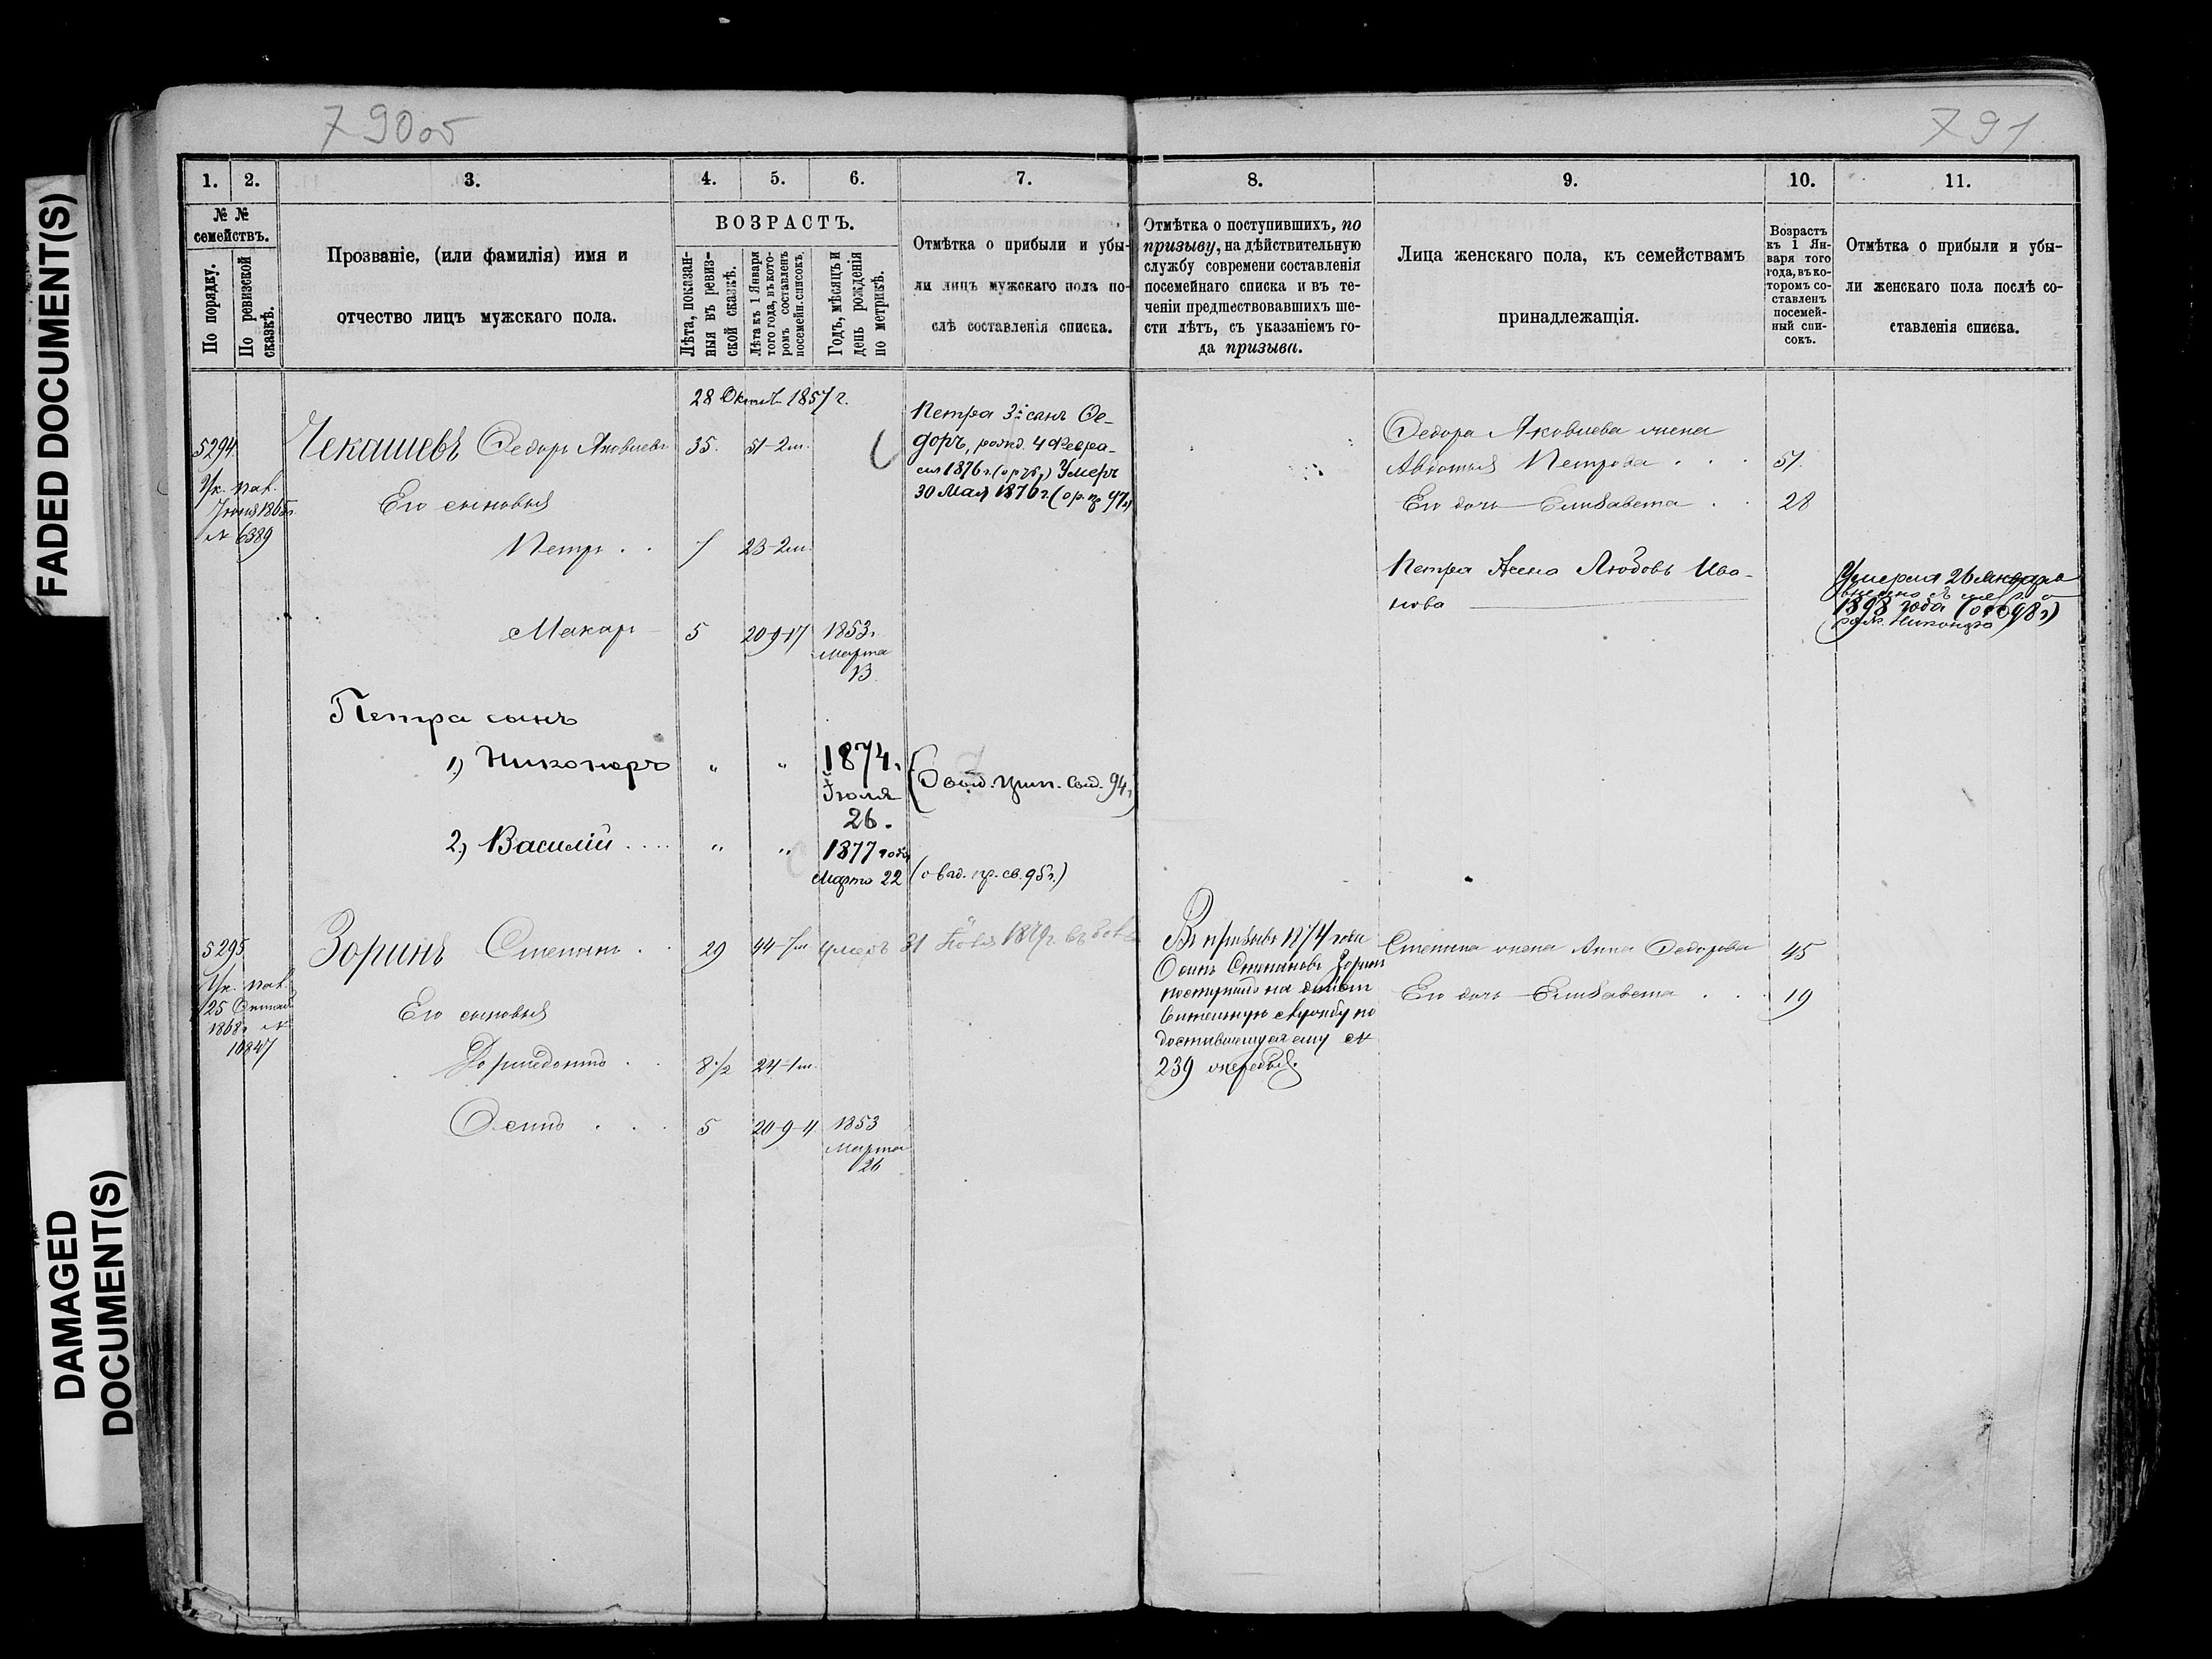 FADED DOCUMENT(S)
DAMAGED
DOCUMENT(S)
790об
791
1. 2. 3. 4. 5. 6. 7. 8. 9. 10. 11.
№ №
семействъ.
По порядку.
По ревизской
сказкѣ.
Прозваніе, (или фамилія) имя и
отчество лицъ мужскаго пола.
ВОЗРАСТЪ.
Лѣта, показан-
ныя въ ревиз-
ской сказкѣ.
Лѣта къ 1 Января
того года, въ кото-
ромъ составленъ
посемейн. списокъ.
Годъ, мѣсяцъ и
день рожденія
по метрикѣ.
Отмѣтка о прибыли и убы-
ли лицъ мужскаго пола по-
слѣ составленія списка.
Отмѣтка о поступившихъ, по
призыву, на дѣйствительную
службу современи составленія
посемейнаго списка и въ те-
ченіи предшествовавшихъ ше-
сти лѣтъ, съ указаніемъ го-
да призыва.
Лица женскаго пола, къ семействамъ
принадлежащія.
Возрастъ
къ 1 Ян-
варя того
года, въ ко-
торомъ со-
ставленъ
посемей-
ный спи-
сокъ.
Отмѣтка о прибыли и убы-
ли женскаго пола послѣ со-
ставленія списка.
28 Октяб. 1857 г.
5294
Ук. пал.
1865г.
№ 6389
Чекашевъ Федоръ Яковлевъ 35. 51-2м.
Его сыновья
Петръ . . 7 23-2м.
Макаръ 5 20-9-17 1853г.
Марта
13.
Петра 3й сынъ Фе-
доръ, рожд. 4 Февра-
ля 1876 г. Умеръ
30 Мая 1876 г.
Федора Яковлева жена
Авдотья Петрова . . . 51.
Его дочь Елизавета . . 28
Петра Жена Любовь Ива-
нова
Умерла 26 Января
1898 года
Петра сынъ
1) Никаноръ " " 1874г.
Іюля
26.
94г.
2) Василій .... " " 1877 года
Марта 22
(о пр. св. 95г.)
5295
Ук. пал.
25
1868г. №
10847
Зоринъ Степанъ . . 29 44-7м умеръ 31
Его сыновья
Дормедонтъ . . 8 1/2 24-1м.
Осипъ . . . 5 20-9-4 1853
Марта
26
Въ призывъ 1874 года
Осипъ Степановъ Зоринъ
поступилъ на дѣйст
вительную службу по
доставшемуся ему №
239 жеребья.
Степана жена Анна Федорова 45
Его дочь Елизавета . . . 19